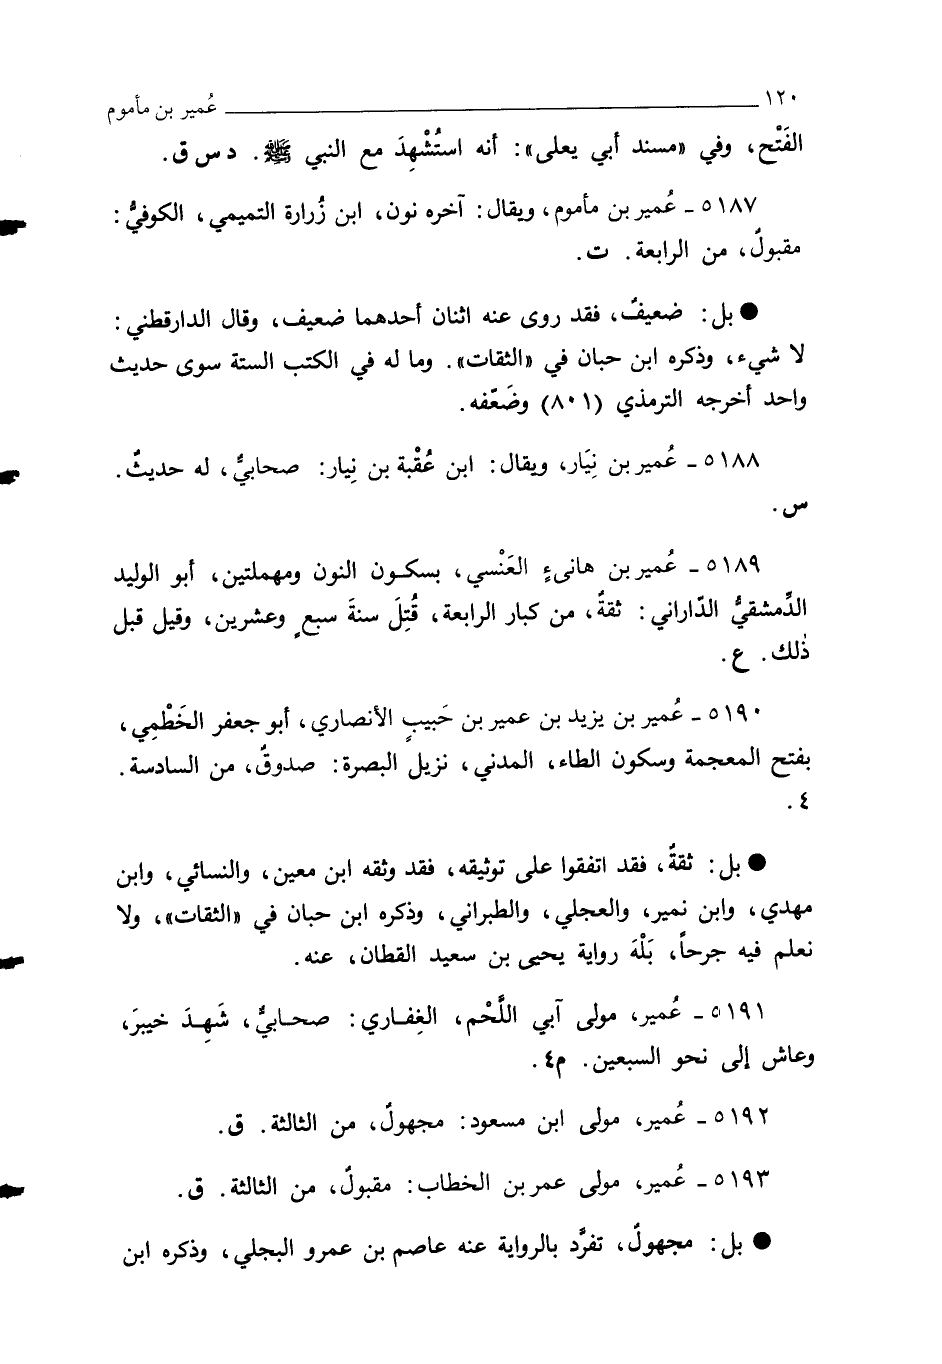 ١٢٠ عُمير بن مأموم
الفَتْح، وفي «مسند أبي يعلى»: أنه استُشْهِدَ مع النبي ﷺ. د س ق.
٥١٨٧ ـ عُمير بن مأموم، ويقال: آخره نون، ابن زُرارة التميمي، الكوفيُّ:
مقبولٌ، من الرابعة. ت.
● بل: ضعيفٌ، فقد روى عنه اثنان أحدهما ضعيف، وقال الدارقطني:
لا شيء، وذكره ابن حبان في «الثقات». وما له في الكتب الستة سوى حديث
واحد أخرجه الترمذي (٨٠١) وضَعّفه.
٥١٨٨ ـ عُمير بن نِيَار، ويقال: ابن عُقْبة بن نِيار: صحابيٌّ، له حديثٌ.
س.
٥١٨٩ ـ عُمير بن هانىءٍ العَنْسي، بسكون النون ومهملتين، أبو الوليد
الدِّمشقيُّ الدّاراني: ثقةٌ، من كبار الرابعة، قُتِلَ سنةَ سبعٍ وعشرين، وقيل قبل
ذٰلك. ع.
٥١٩٠ ـ عُمير بن يزيد بن عمير بن حَبيبٍ الأنصاري، أبو جعفر الخَطْمِي،
بفتح المعجمة وسكون الطاء، المدني، نزيل البصرة: صدوقٌ، من السادسة.
٤.
● بل: ثقةٌ، فقد اتفقوا على توثيقه، فقد وثقه ابن معين، والنسائي، وابن
مهدي، وابن نمير، والعجلي، والطبراني، وذكره ابن حبان في «الثقات»، ولا
نعلم فيه جرحاً، بَلْهَ رواية يحيى بن سعيد القطان، عنه.
٥١٩١ ـ عُمير، مولى آبي اللَّحْم، الغِفاري: صحابيٌّ، شَهِدَ خيبرَ،
وعاش إلى نحو السبعين. م٤.
٥١٩٢ ـ عُمير، مولى ابن مسعود: مجهولٌ، من الثالثة. ق.
٥١٩٣ ـ عُمير، مولى عمر بن الخطاب: مقبولٌ، من الثالثة. ق.
● بل: مجهولٌ، تفرَّد بالرواية عنه عاصم بن عمرو البجلي، وذكره ابن